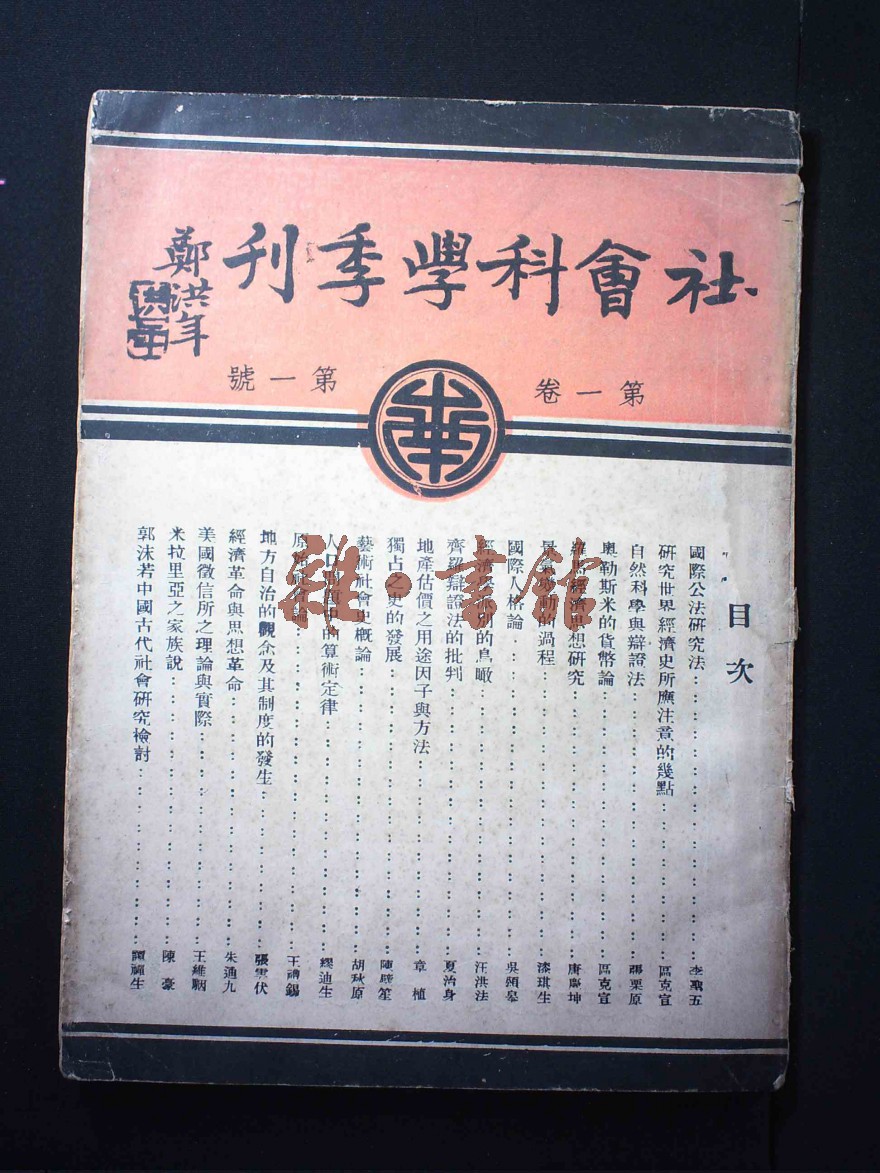 社會科學季刊
鄭洪年
洪年
第一卷
第一號
華
目次
國際公法研究法 李聖五
研究世界經濟史所應注意的幾點 區克宣
自然科學與辯證法 栗原
奧勒斯米的貨幣論 區克宣
羅馬經濟思想研究 唐慶坤
景氣變動的過程 漆琪生
國際人格論 吳頌皋
經濟學派別的鳥瞰 汪洪法
齊羅辯證法的批判 夏治身
地產估價之用途因子與方法 章植
獨占之史的發展 陳壁笙
藝術社會史概論 胡秋原
人口 的算術定律 繆迪生
原始社會論 王禮錫
地方自治的觀念及其制度的發生 張雲伏
經濟革命與思想革命 朱通九
美國徵信所之理論與實際 王維駰
米拉里亞之家族說 陳豪
郭沫若中國古代社會研究檢討 譚輔生
雜·書館